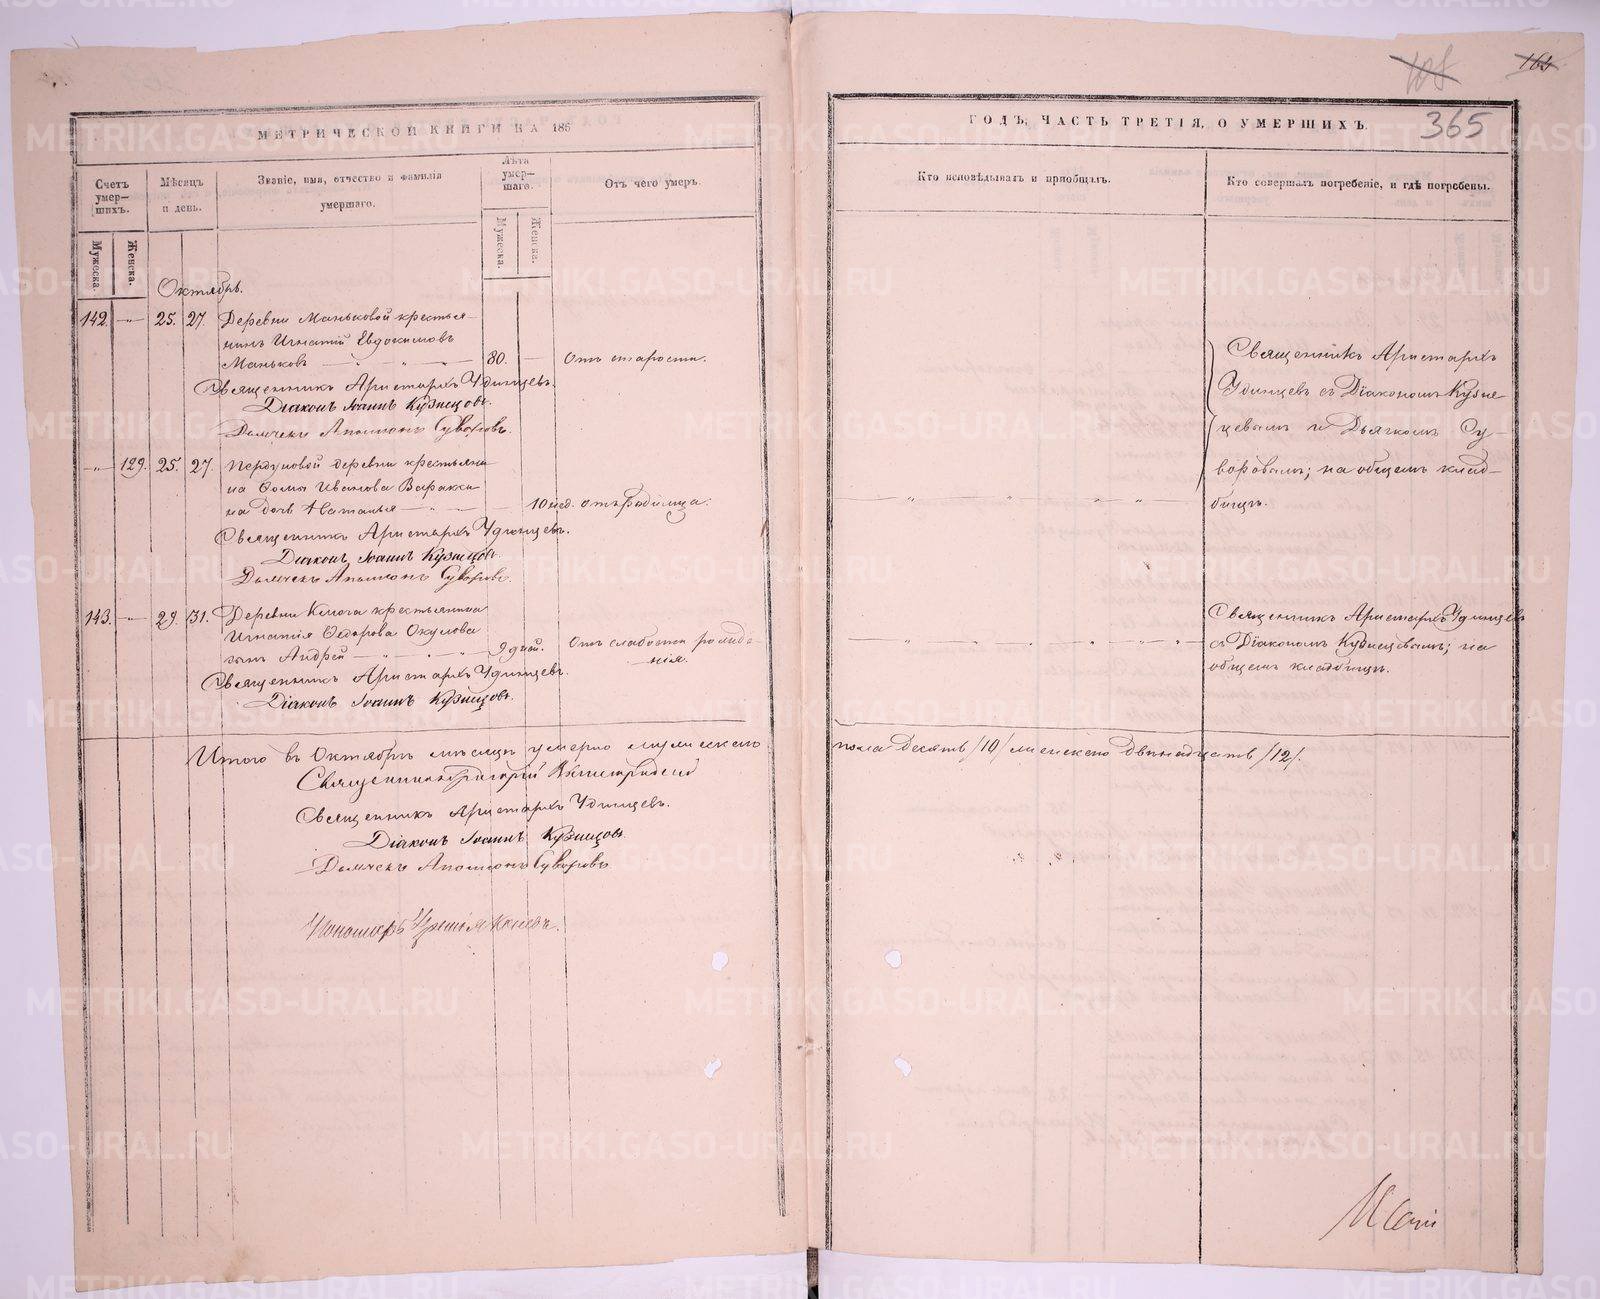 108
164
365
МЕТРИЧЕСКОЙ КНИГИ НА 186
ГОДЪ, ЧАСТЬ ТРЕТІЯ, О УМЕРШИХЪ.
Счетъ умер-шихъ.
Мужеска.
Женска.
Мѣсяцъ и день.
Званіе, имя, отчество и фамилія умершаго.
Лѣта умер-шаго.
Мужеска.
Женска.
Отъ чего умеръ.
Кто исповѣдывалъ и пріобщалъ.
Кто совершалъ погребеніе, и гдѣ погребены.
Октябрь.
142. — 25. 27. Деревни Маньковой крестья-
нинъ Игнатій Евдокимовъ
Маньковъ — 80. — Отъ старости.
Священникъ Аристархъ Удинцевъ.
Діаконъ Іоаннъ Кузнецовъ.
Дьячекъ Аполлонъ Суворовъ.
Священникъ Аристархъ
Удинцевъ съ Діакономъ Кузне
цевымъ и Дьячкомъ Су-
воровымъ; на общемъ клад-
бищѣ.
— 129. 25. 27. деревни крестьяни-
на Ѳомы Иванова
на дочь — 10 нед. отъ родимца.
Священникъ Аристархъ Удинцевъ.
Діаконъ Іоаннъ Кузнецовъ.
Дьячекъ Аполлонъ Суворовъ.
143. — 29. 31. Деревни Ключа крестьянина
Игнатія Ѳедорова Окулова
сынъ Андрей — 9 дней. Отъ слабости рожде-
нія.
Священникъ Аристархъ Удинцев
съ Діакономъ Кузнецевымъ; на
общемъ кладбищѣ.
Священникъ Аристархъ Удинцевъ.
Діаконъ Іоаннъ Кузнецовъ.
Итого въ Октябрѣ мѣсяцѣ умерло мужескаго
пола десять /10/ женскаго двенадцать /12/.
Священникъ Григорій
Священникъ Аристархъ Удинцевъ.
Діаконъ Іоаннъ Кузнецовъ.
Дьячекъ Аполлонъ Суворовъ
METRIKI.GASO-URAL.RU